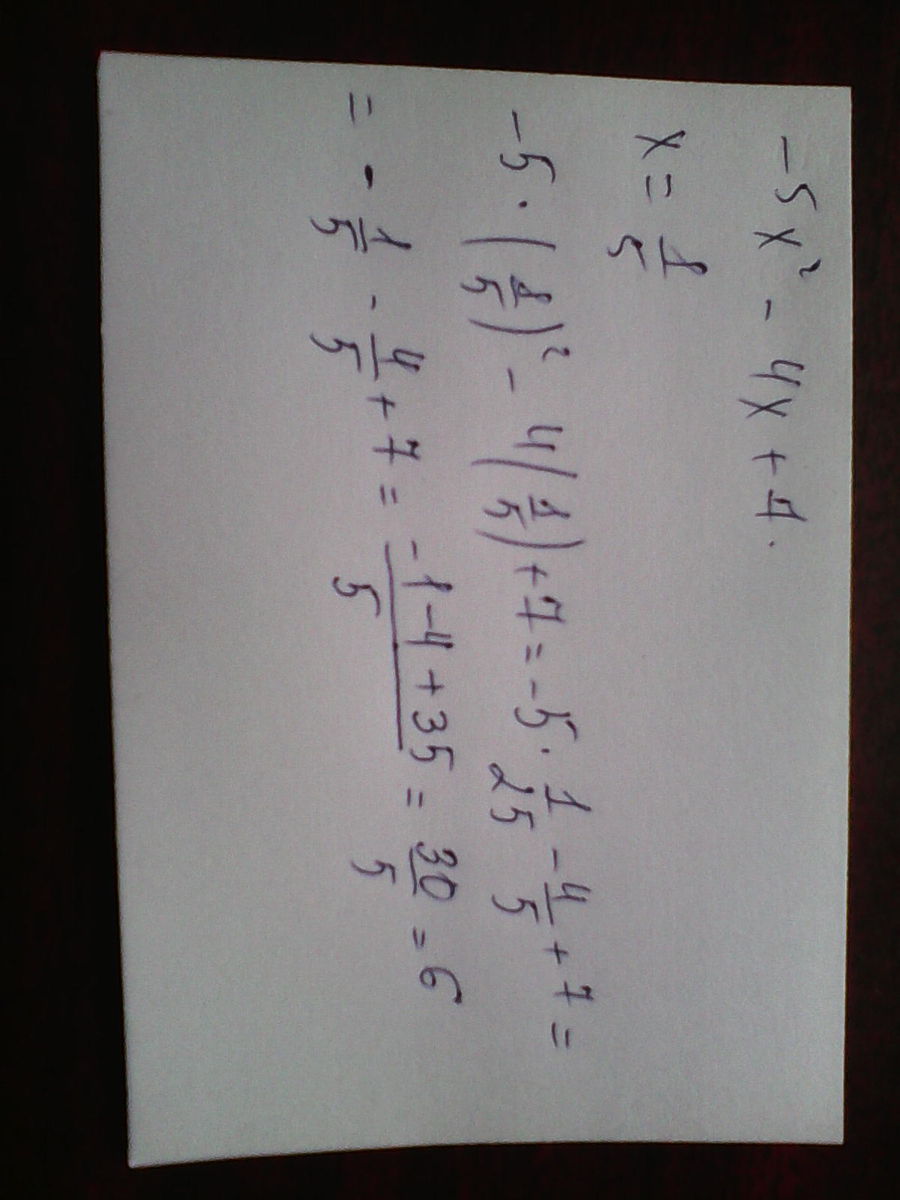 -5x² - 4x + 7.
x = 1/5
-5 · (1/5)² - 4(1/5) + 7 = -5 · 1/25 - 4/5 + 7 =
= - 1/5 - 4/5 + 7 = (-1-4+35)/5 = 30/5 = 6